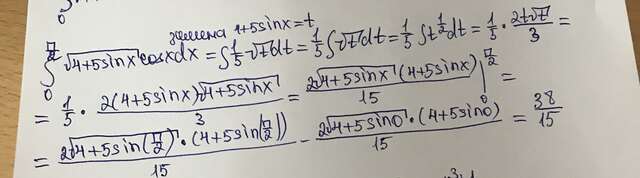 замена 4+5sinx=t
∫₀^(π/2) √(4+5sinx) cosxdx = ∫ 1/5 √t dt = 1/5 ∫ √t dt = 1/5 ∫ t^(1/2) dt = 1/5 · 2t√t/3 =
= 1/5 · 2(4+5sinx)√(4+5sinx)/3 = 2√(4+5sinx) (4+5sinx)/15 |₀^(π/2) =
= 2√(4+5sin(π/2)) · (4+5sin(π/2))/15 - 2√(4+5sin0) · (4+5sin0)/15 = 38/15